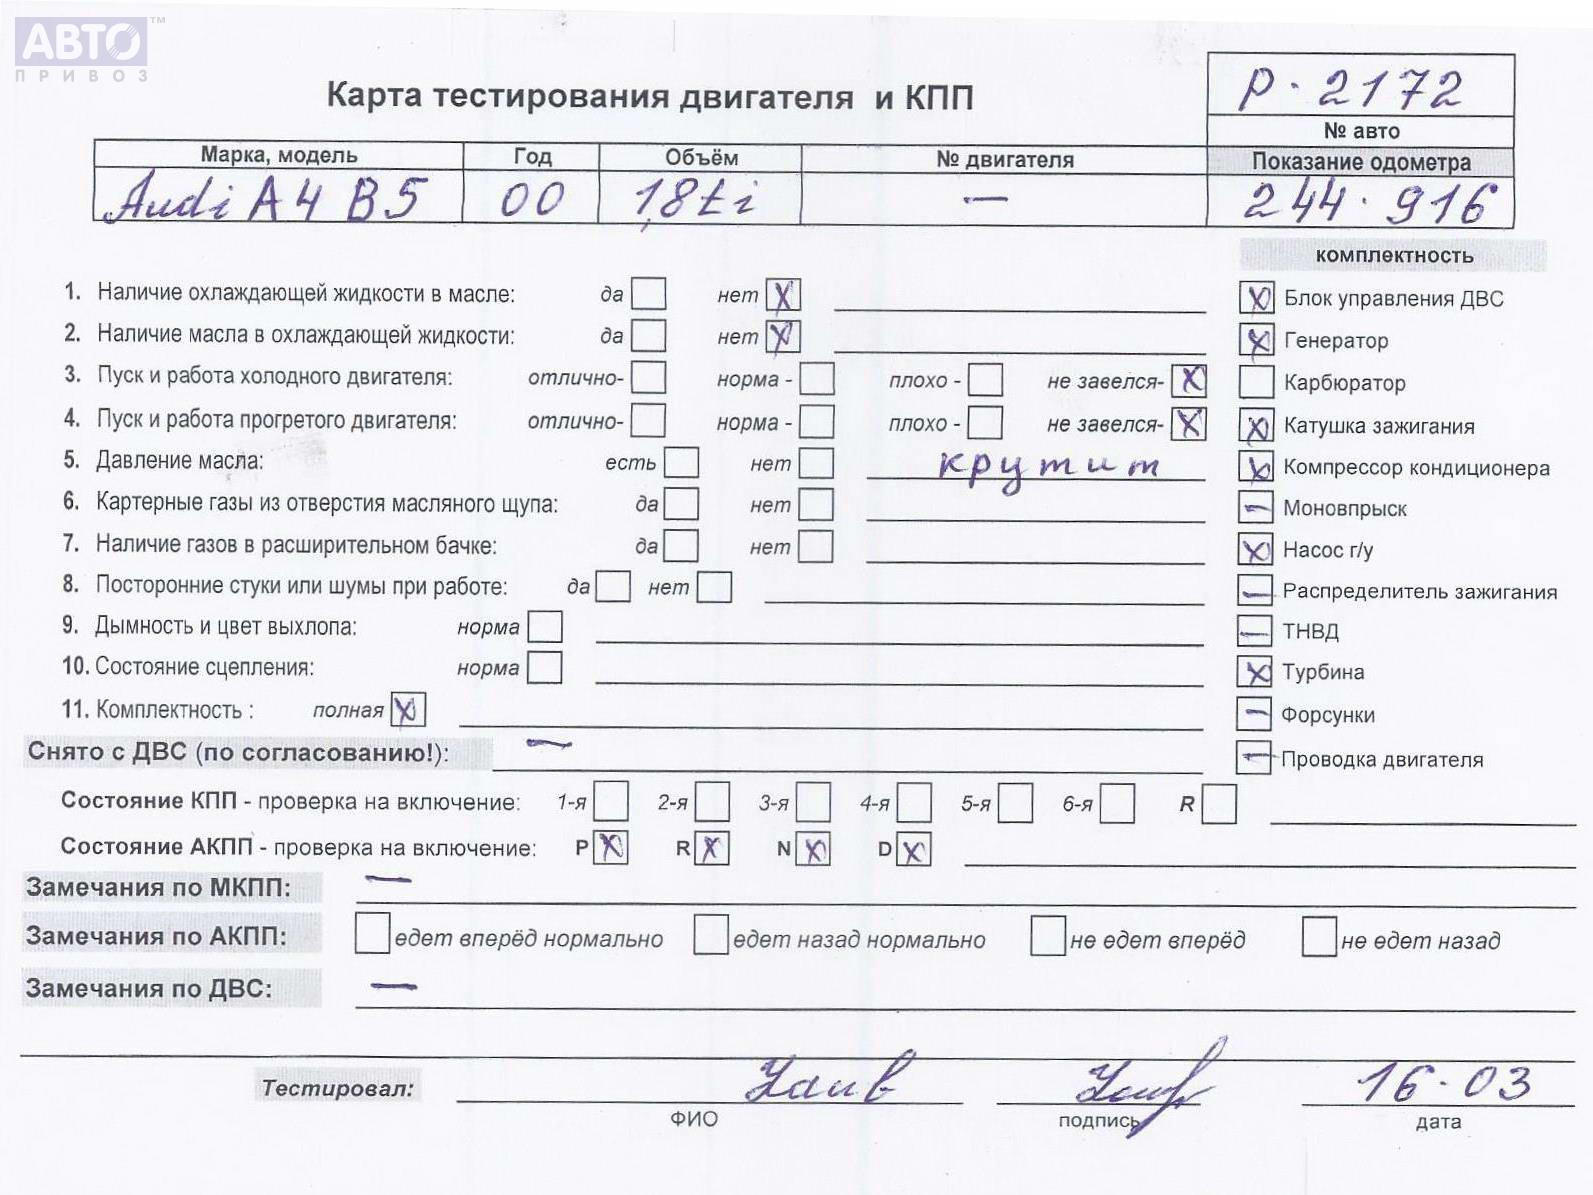 АВТО ™
ПРИВОЗ
Карта тестирования двигателя и КПП
Р-2172
№ авто
Марка, модель Год Объём № двигателя Показание одометра
Audi A4 B5 00 1,8ti — 244.916
комплектность
1. Наличие охлаждающей жидкости в масле: да нет X
X Блок управления ДВС
2. Наличие масла в охлаждающей жидкости: да нет X
X Генератор
3. Пуск и работа холодного двигателя: отлично- норма - плохо - не завелся- X
Карбюратор
4. Пуск и работа прогретого двигателя: отлично- норма - плохо - не завелся- X
X Катушка зажигания
5. Давление масла: есть нет крутит
X Компрессор кондиционера
6. Картерные газы из отверстия масляного щупа: да нет
— Моновпрыск
7. Наличие газов в расширительном бачке: да нет
X Насос г/у
8. Посторонние стуки или шумы при работе: да нет
— Распределитель зажигания
9. Дымность и цвет выхлопа: норма
— ТНВД
10. Состояние сцепления: норма
X Турбина
11. Комплектность : полная X
— Форсунки
Снято с ДВС (по согласованию!): —
— Проводка двигателя
Состояние КПП - проверка на включение: 1-я 2-я 3-я 4-я 5-я 6-я R
Состояние АКПП - проверка на включение: P X R X N X D X
Замечания по МКПП: —
Замечания по АКПП: едет вперёд нормально едет назад нормально не едет вперёд не едет назад
Замечания по ДВС: —
Тестировал: 16-03
ФИО подпись дата